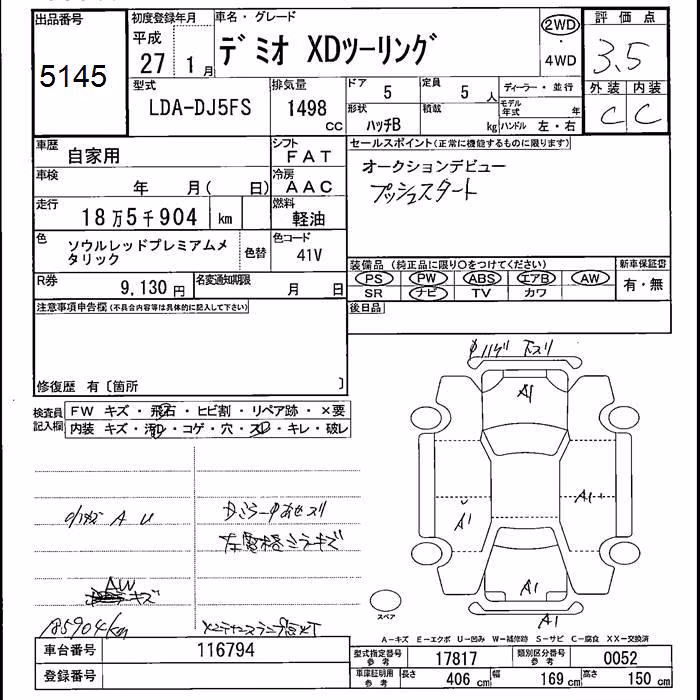 出品番号
5145
初度登録年月
平成
27 1月
車名・グレード
デミオ XDツーリング
2WD
・
4WD
評価点
3.5
外装 内装
C C
型式
LDA-DJ5FS
排気量
1498
cc
ドア
5
定員
5 人
形状
ハッチB
積載
kg
ディーラー・並行
モデル年式 年
ハンドル 左・右
車歴
自家用
シフト
FAT
車検
年 月( 日)
冷房
AAC
走行
18万5千904 km
燃料
軽油
色
ソウルレッドプレミアムメタリック
色替
色コード
41V
R券
9,130円
名変通知期限
月 日
セールスポイント(正常に機能するものに限ります)
オークションデビュー
プッシュスタート
装備品(純正品に限り○をつけてください)
PS PW ABS エアB AW
SR ナビ TV カワ
新車保証書
有・無
後日品
注意事項申告欄(不具合内容等は具体的に記入して下さい)
修復歴 有〔箇所 〕
検査員記入欄
FW キズ・飛石・ヒビ割・リペア跡・×要
内装 キズ・汚れ・コゲ・穴・スレ・キレ・破レ
A U
左電格ミラーキズ
AW
キズ
185904km
A1
A1
A1+
A1
A1
スペア
A-キズ E-エクボ U-凹み W-補修跡 S-サビ C-腐食 XX-交換済
車台番号
116794
登録番号
型式指定番号
参考
17817
類別区分番号
参考
0052
車庫証明用
参考
長さ 406 cm
幅 169 cm
高さ 150 cm